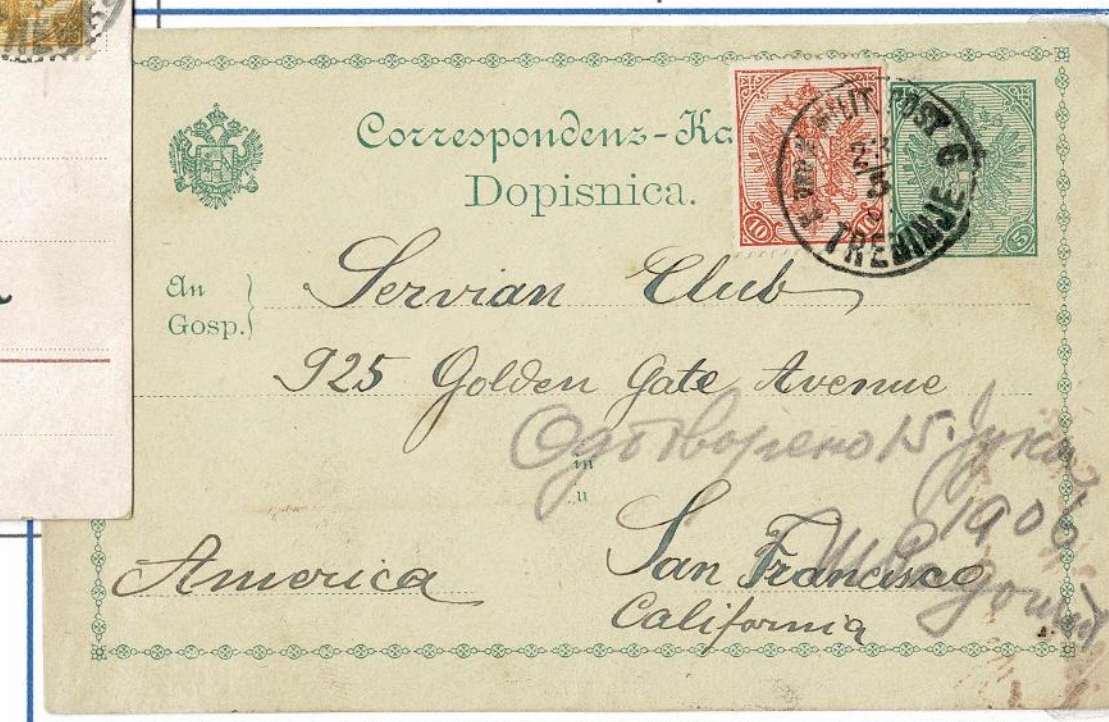 Correspondenz-Ka
Dopisnica.
10
10
5
K. UND K. MILIT. POST
TREBINJE
An
Gosp.
Servian Club
925 Golden Gate Avenue
Одговорено 15. Јука,
1906
in
u
San Francisco
California
America